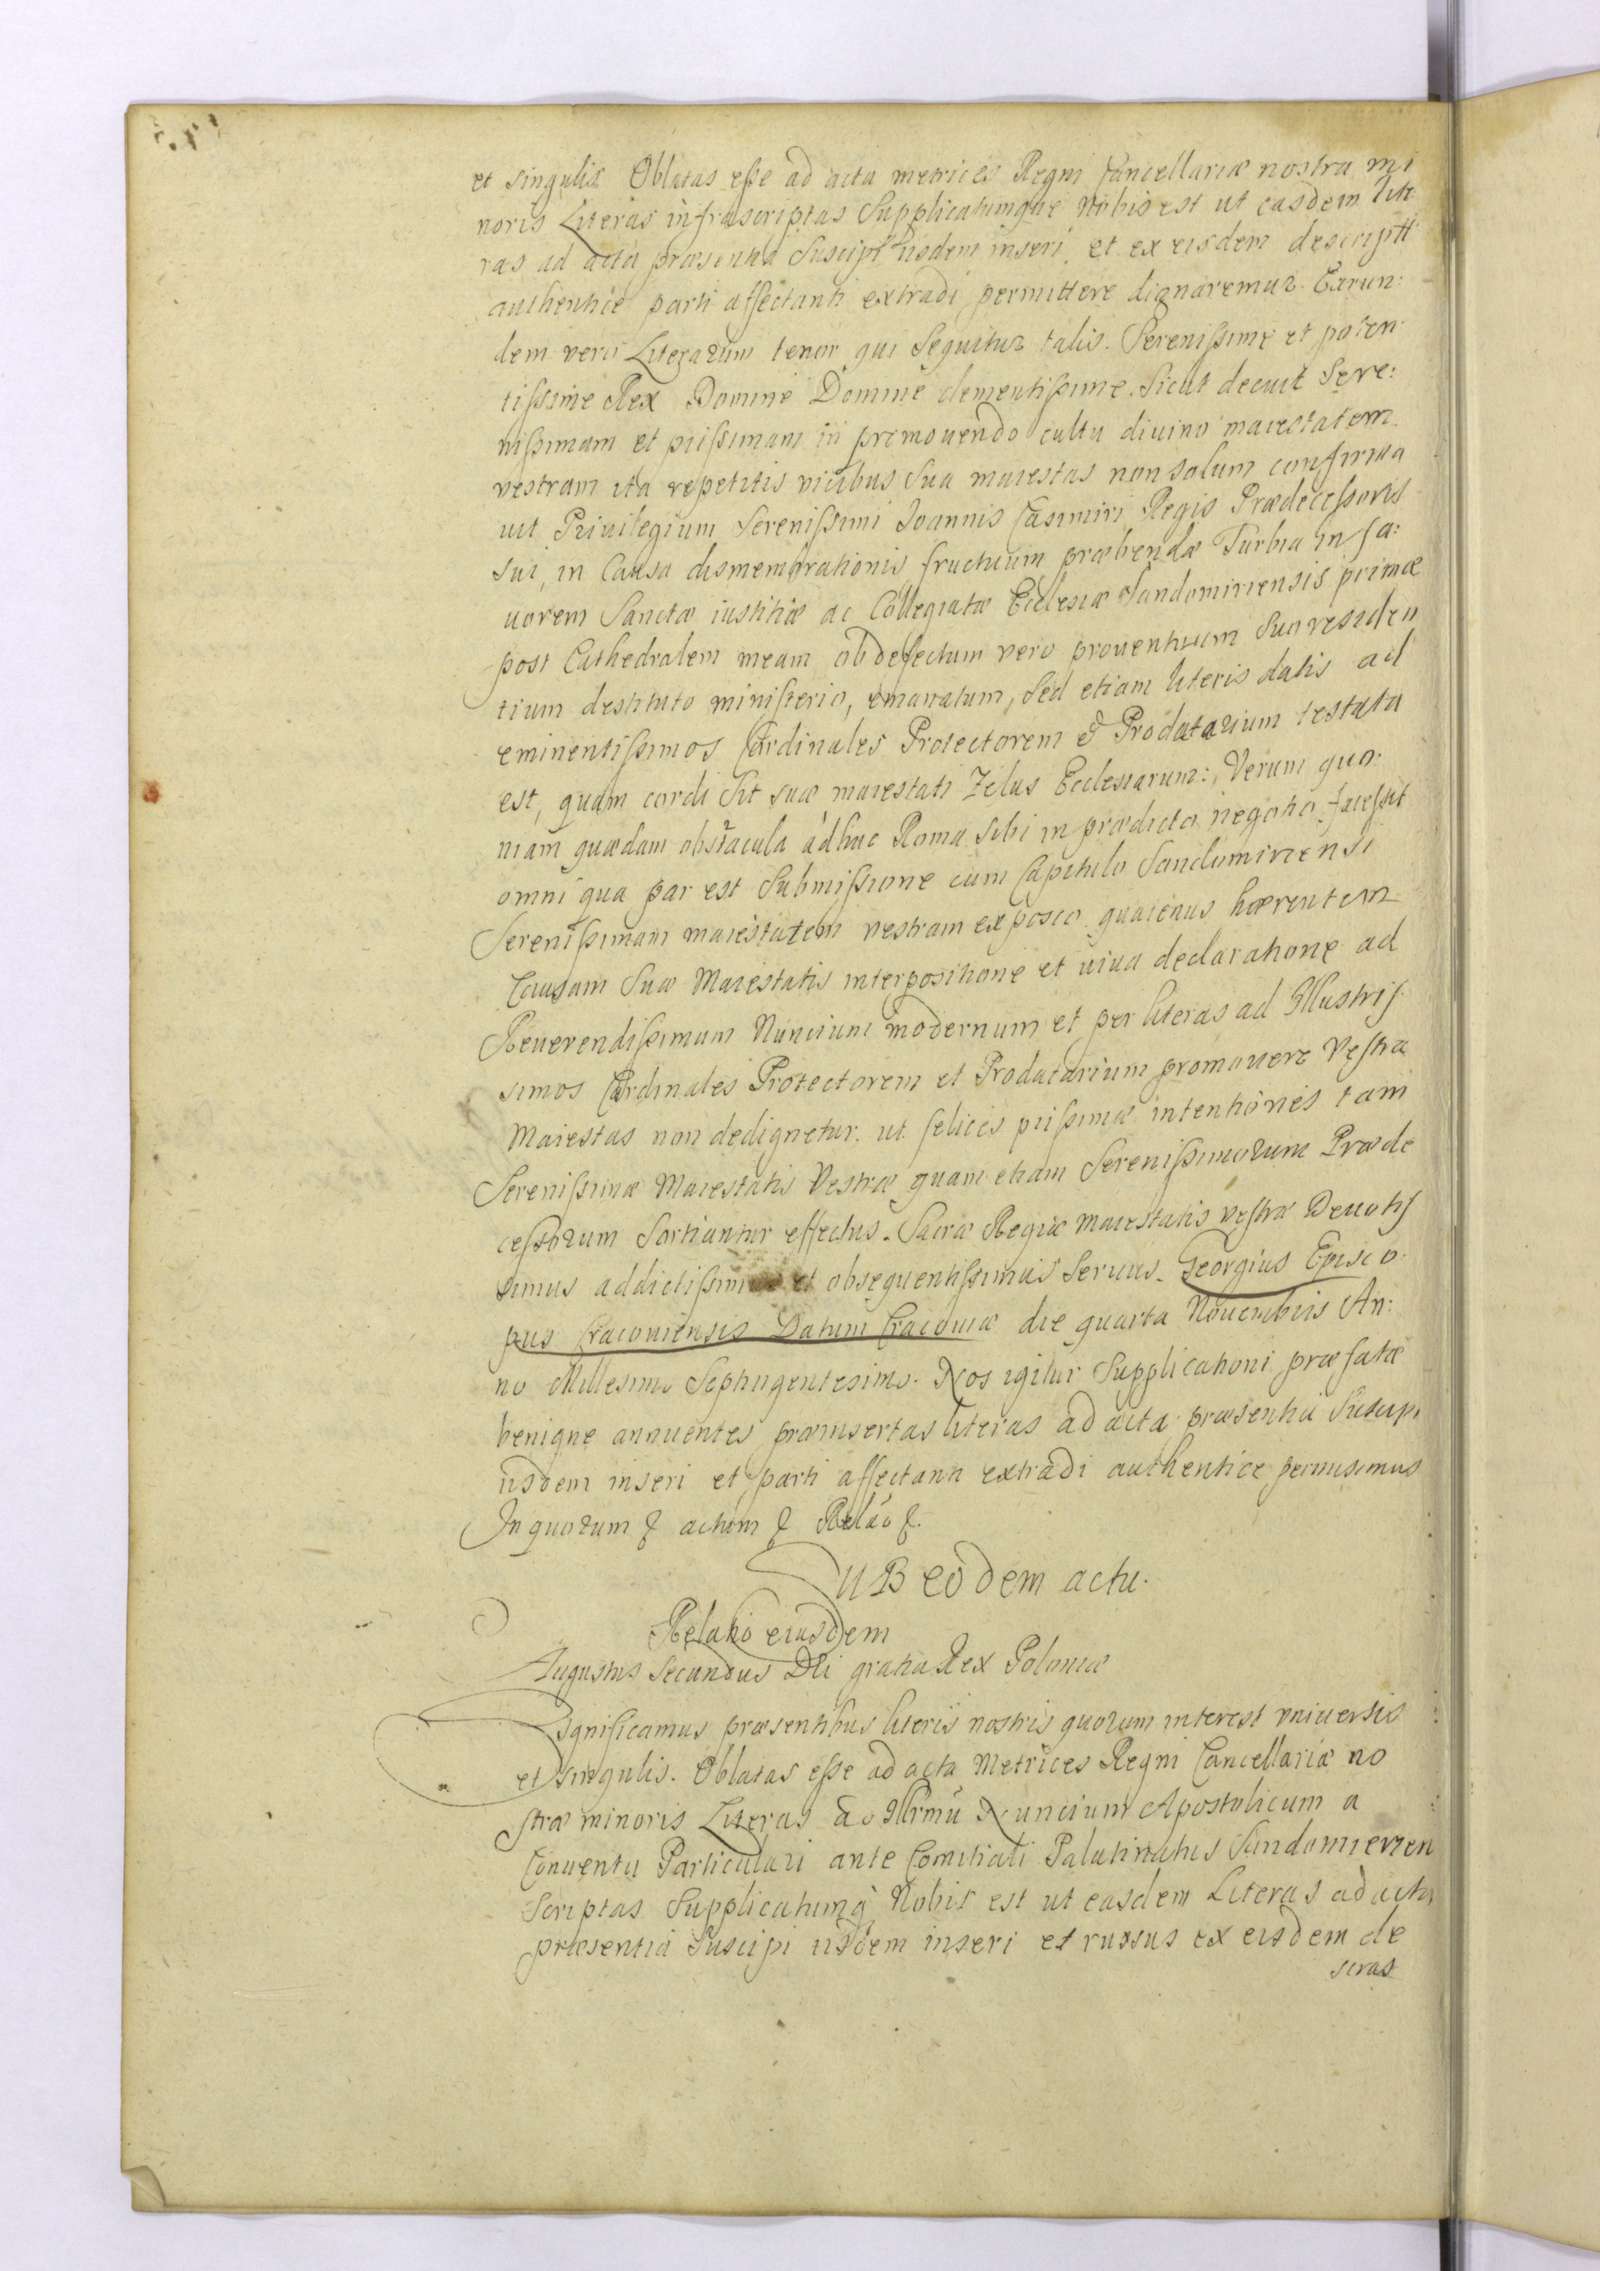 et singulis Oblatas esse ad acta metrices Regni Cancellariæ nostra mi
noris Literas infrascriptas Supplicatumque Nobis est ut easdem lite
ras ad acta præsentia Suscipi iisdem inseri et ex eisdem descriptt
authentice parti affectanti extradi permittere dignaremur. Earun:
dem vero Literarum tenor qui Sequitur talis. Serenissime et poten
tissime Rex Domine Domine clementissime. Sicut decuit Sere:
nissimam et piissimam in promouendo cultu diuino maiestatem
vestram ita repetitis vicibus Sua maiestas non solum confirma
uit Priuilegium Serenissimi Joannis Casimiri Regis Prædecessoris
sui, in Causa dismembrationis fructuum præbendæ Turbia in fa:
uorem Sanctæ iustitiæ ac Collegiatæ Ecclesiæ Sandomiriensis primæ
post Cathedralem meam ob defectum vero prouentuum Suo residen
tium destituto ministerio, emanatum, Sed etiam literis datis ad
eminentissimos Cardinales Protectorem & Prodatarium testata
est, quam cordi Sit suæ maiestati Zelus Ecclesiarum: Verum quo
niam quædam obstacula adhuc Roma sibi in prædicto negotio facessit
omni qua par est Submissione cum Capitulo Sandomiriensi
Serenissimam maiestatem vestram exposco quatenus hærentem
Causam Suæ Maiestatis interpositione et viua declaratione ad
Reuerendissimum Nuncium modernum et per literas ad Illustris
simos Cardinales Protectorem et Prodatarium promouere Vestra
Maiestas non dedignetur. ut felices piissimæ intentiones tam
Serenissimæ Maiestatis Vestræ quam etiam Serenissimorum Præde
cessorum Sortiantur effectus. Sacræ Regiæ Maiestatis vestræ Deuotis
simus addictissimus et obsequentissimus Seruus. Georgius Episco
pus Cracouiensis Datum Cracouiæ die quarta Nouembris An:
no Millesimo Septingentesimo. Nos igitur Supplicationi præfatæ
benigne annuentes præinsertas literas ad acta præsentia Suscipi
iisdem inseri et parti affectanti extradi authentice permisimus
In quorum & actum & Relão &.
SuB eodem actu.
Relatio eiusdem
Augustus Secundus Dei gratia Rex Poloniæ
Significamus præsentibus literis nostris quorum interest vniuersis
et singulis. Oblatas esse ad acta Metrices Regni Cancellariæ no
stræ minoris Literas ad Illrmũ Nuncium Apostolicum a
Conuentu Particulari ante Comitiali Palatinatus Sandomirien
Scriptas Supplicatumq̃ Nobis est ut easdem Literas ad acta
præsentia Suscipi iisdem inseri et rursus ex eisdem de
scras